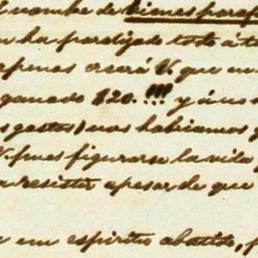 el nombre de bienes parap
n ha paralizado todo á t
apenas creerá V. que en
ganado $20.!!! y á u
s gastos) nos habiamos g
V. pues figurarse la vida
a resistir apesar de que
n em espiritu abatido, p